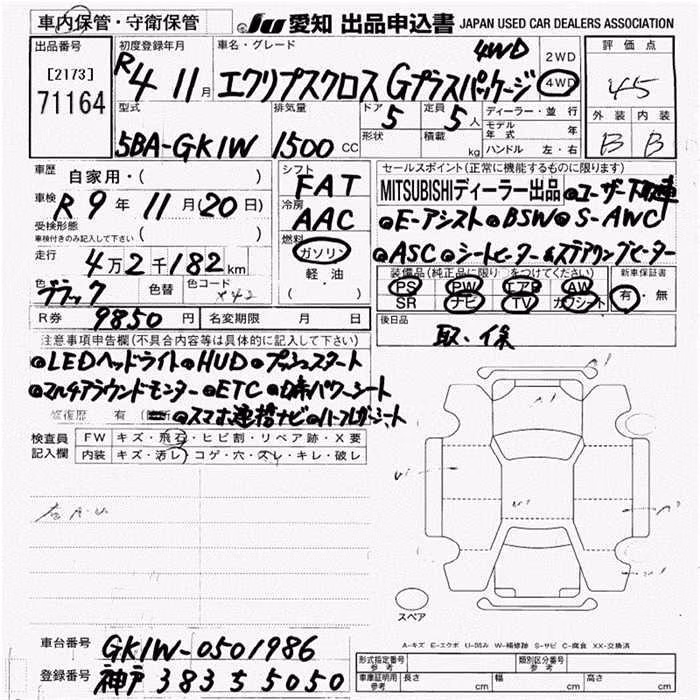 車内保管・守衛保管
JU 愛知 出品申込書 JAPAN USED CAR DEALERS ASSOCIATION
出品番号
[2173]
71164
初度登録年月
R4 11月
車名・グレード
4WD
エクリプスクロス Gプラスパッケージ
2WD
4WD
評価点
4.5
外装 内装
B B
型式
5BA-GK1W
排気量
1500 CC
ドア
5
定員
5人
形状
積載
kg
ディーラー・並行
モデル年式 年
ハンドル 左・右
車歴
自家用・( )
車検
R9年11月(20日)
受検形態
車検付きのみ記入して下さい ( )
走行
4万2千182km
色
ブラック
色替
色コード
X42
シフト
FAT
冷房
AAC
燃料
ガソリン
軽油
( )
セールスポイント(正常に機能するものに限ります)
MITSUBISHIディーラー出品 ●ユーザー下取車
●E-アシスト ●BSW ● S-AWC
●ASC ●シートヒーター &ステアリングヒーター
装備品(純正品に限り○をつけてください)
PS PW エアB AW
SR ナビ TV カワシート
新車保証書
有・無
R券 9850円
名変期限 月 日
後日品
取・保
注意事項申告欄(不具合内容等は具体的に記入して下さい)
●LEDヘッドライト ●HUD ●プッシュスタート
●マルチアラウンドモニター ●ETC ●D席パワーシート
修復歴 有 ●スマホ連携ナビ ●ハーフレザーシート
検査員記入欄
FW キズ・飛石・ヒビ割・リペア跡・X要
内装 キズ・汚レ・コゲ・穴・スレ・キレ・破レ
スペア
A-キズ E-エクボ U-凹み W-補修跡 S-サビ C-腐食 XX-交換済
車台番号
GK1W-0501986
登録番号
神戸 383 ら 5050
形式指定番号 参考
類別区分番号 参考
車庫証明用 参考
長さ cm
幅 cm
高さ cm